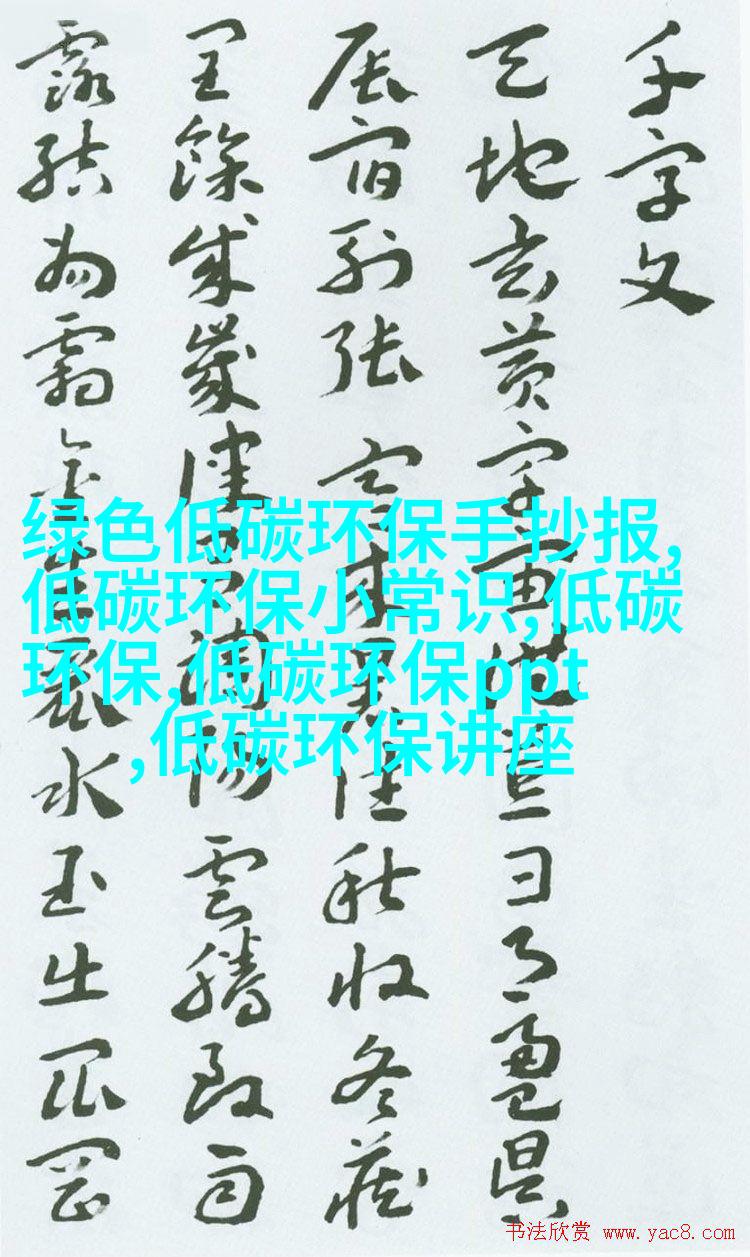 千字文
天地玄黃宇宙洪荒日月盈昃
辰宿列張寒來暑往秋收冬藏
閏餘成歲律呂調陽雲騰致雨
露結為霜金生麗水玉出崑岡
绿色低碳环保手抄报,
低碳环保小常识,低碳
环保,低碳环保ppt
,低碳环保讲座
书法欣赏 www.yac8.com